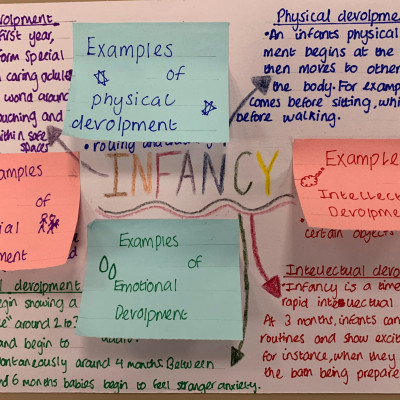 devolpment
first year,
form special
caring adults
world around
touching and
within safe
spaces
Examples
of
physical
devolpment
routing and
Physical devolpme
•An infants physical
ment begins at the
then moves to other
the body. For examp
comes before sitting, whi
before walking.
INFANCY
amples
of
ial
ment
Example
Intellec
Devolpme
certain object
Examples
of
Emotional
Devolpment
l devolpment
egin showing a
around 2 to 3
and begin to
ontaneously around 4 months. Between
6 months babies begin to feel stranger anxiety.
Intellectual devo
•Infancy is a time
rapid intellectual
At 3 months, infants can
routines and show excit
for instance, when they
the bath being prepare